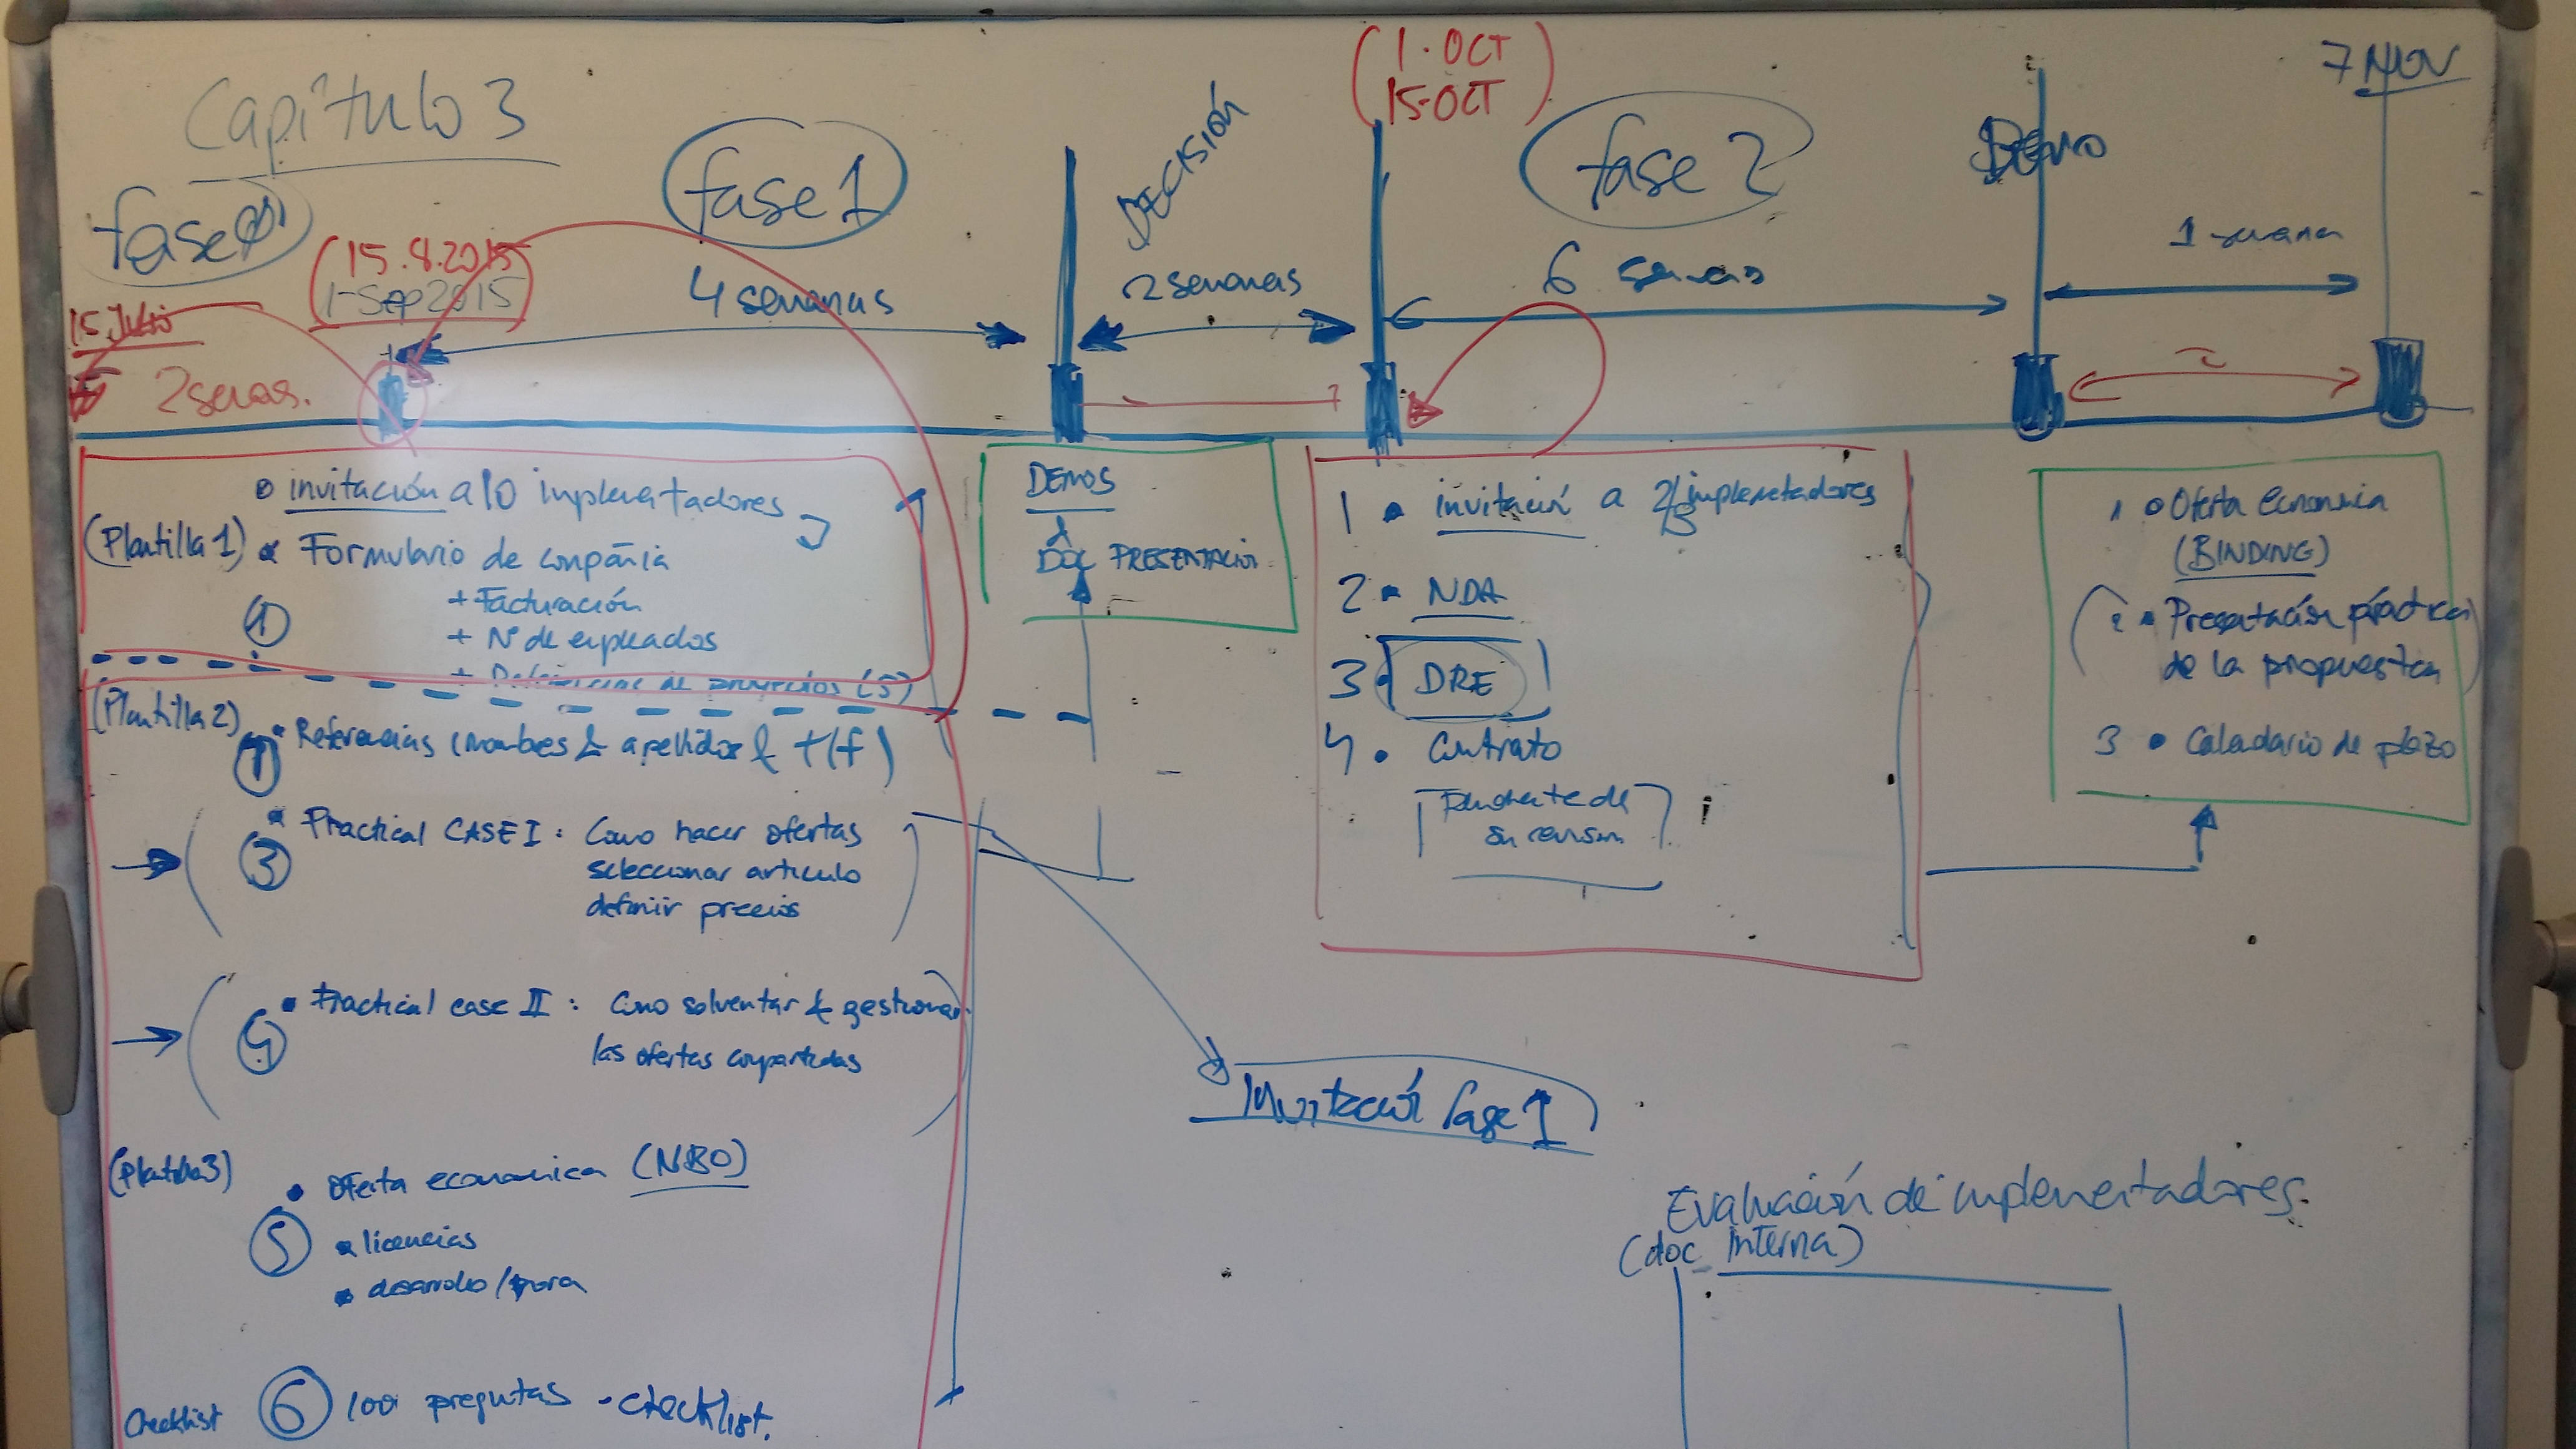 Capítulo 3
fase 0
15 Julio
2 semas.
(15.8.2015
1-Sep 2015)
fase 1
4 semanas
DECISIÓN
2 semanas
(1-OCT
15-OCT)
fase 2
6 semanas
DEMO
1 semana
2
7 NOV
invitación a 10 implementadores
(Plantilla 1) Formulario de compañia
+ Facturación
1 + Nº de empleados
+ de proyectos (5)
(Plantilla 2)
Referencias (nombres & apellidos & tlf)
Practical CASE I: Como hacer ofertas
3 seleccionar articulo
definir precios
Practical case II: Como solventar & gestionar
4 las ofertas compartidas
(Plantilla 3)
Oferta economica (NBO)
5 licencias
desarrollo/hora
Checklist 6 100 preguntas - checklist.
DEMOS
&
DOC PRESENTACIÓN
1 invitación a 2/3 implementadores
2 NDA
3 DRE
4 Contrato
[Pendiente de
su revision]
1 Oferta Economica
(BINDING)
(2 Presentación práctica
de la propuesta)
3 Calendario de plazo
Invitación fase 1
Evaluación de implementadores.
(doc interna)